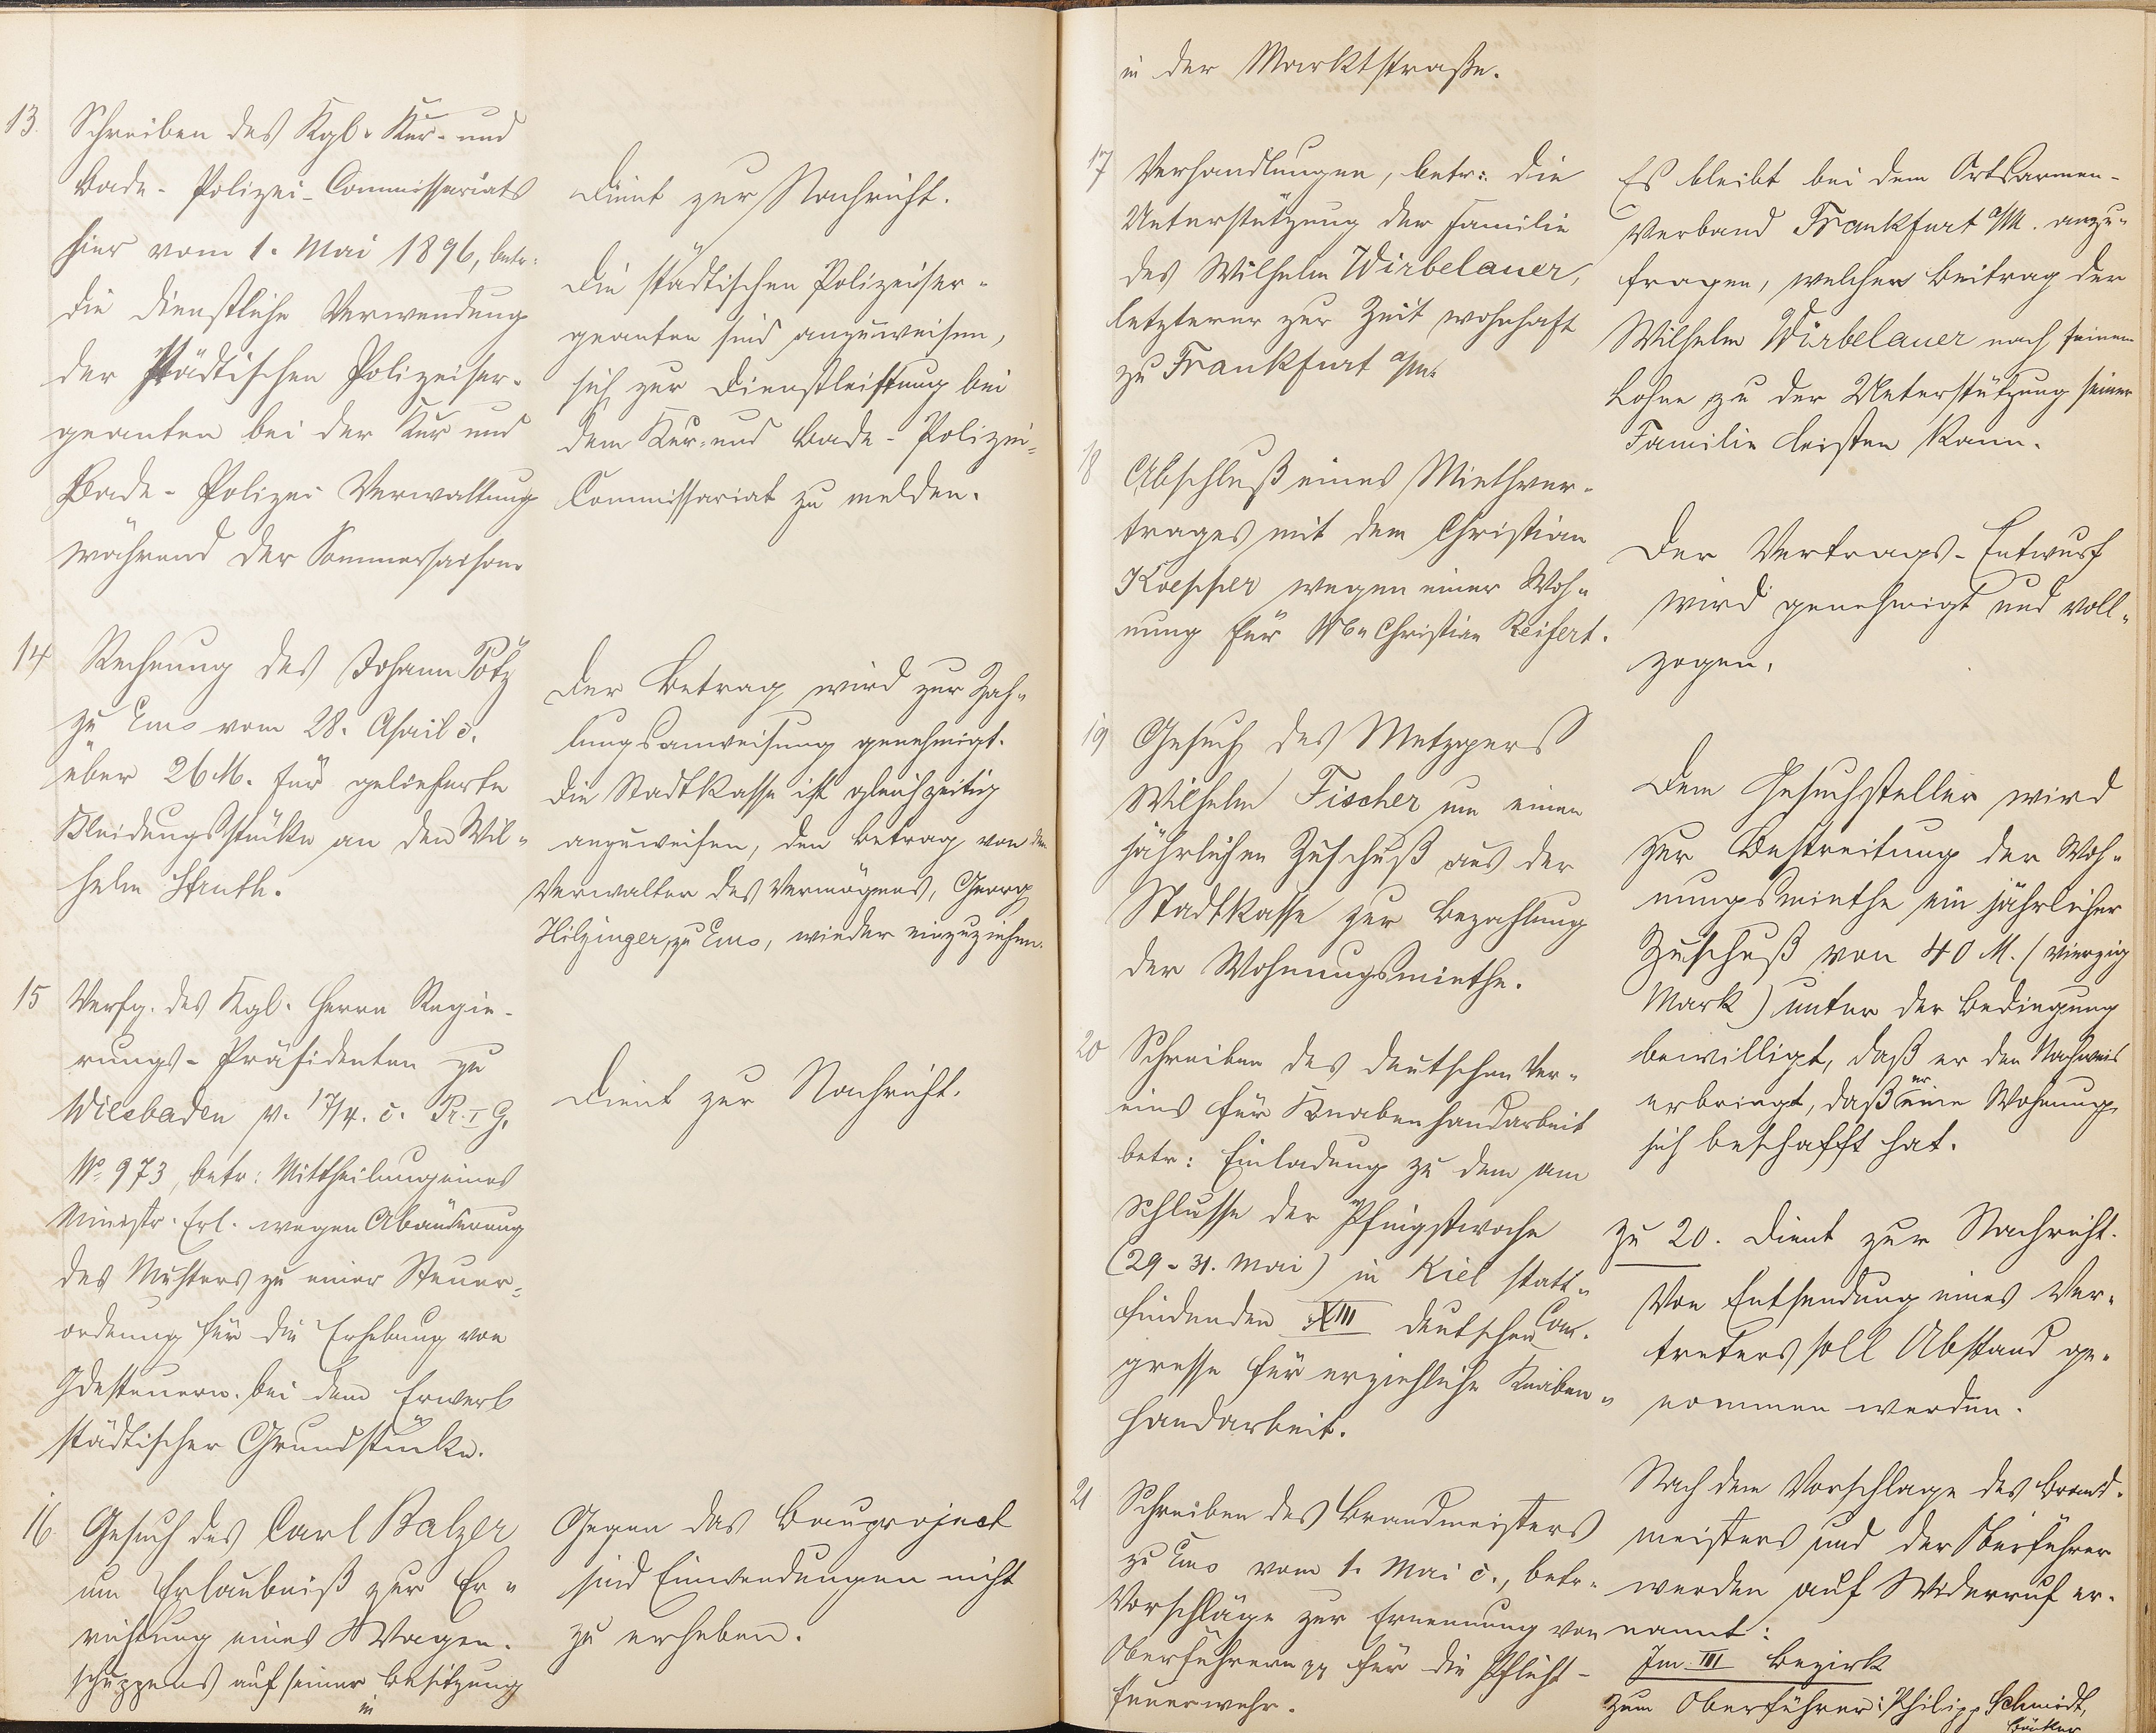 13. Schreiben des Kgl. Kur- und
Bade-Polizei-Commissariats
hier vom 1. Mai 1896, betr.
die dienstliche Verwendung
der städtischen Polizeiser-
geanten bei der Kur und
Bade-Polizei Verwaltung
während der Sommersaison.
Dient zur Nachricht.
Die städtischen Polizeiser-
geanten sind anzuweisen,
sich zur Dienstleistung bei
dem Kur- und Bade-Polizei-
Commissariat zu melden.
14 Rechnung des Johann Pötz
zu Ems vom 28. April c.
über 26 M. für gelieferte
Kleidungsstücke an den Wil-
helm Struth.
Der Betrag wird zur Zah-
lungsanweisung genehmigt.
Die Stadtkasse ist gleichzeitig
anzuweisen, den Betrag von dem
Verwalter des Vermögens, Georg
Hilzinger, zu Ems, wieder einzuziehen.
15 Verfg. des Kgl. Herrn Regie-
rungs-Präsidenten zu
Wiesbaden v. 17/4. c. Pr. I G.
No 973, betr: Mittheilung eines
Ministr. Erl. wegen Abänderung
des Musters zu einer Steuer-
ordnung für die Erhebung von
Gdesteuern bei dem Erwerb
städtischer Grundstücke.
Dient zur Nachricht.
16. Gesuch des Carl Balzer
um Erlaubniß zur Er-
richtung eines Wagen-
schuppens auf seiner Besitzung
in
Gegen das Bauproject
sind Einwendungen nicht
zu erheben.
in der Marktstraße.
17 Verhandlungen, betr: die
Unterstützung der Familie
des Wilhelm Wirbelauer,
letzterer zur Zeit wohnhaft
zu Frankfurt a/M.
Es bleibt bei dem Ortsarmen-
Verband Frankfurt a/M. anzu-
fragen, welchen Beitrag der
Wilhelm Wirbelauer nach seinem
Lohne zu der Unterstützung seiner
Familie leisten kann.
18 Abschluß eines Miethver-
trages mit dem Christian
Koepper wegen einer Woh-
nung für Christian Reifert.
Der Vertrags-Entwurf
wird genehmigt und voll-
zogen.
19 Gesuch des Metzgers
Wilhelm Fischer um einen
jährlichen Zuschuß aus der
Stadtkasse zur Bezahlung
der Wohnungsmiethe.
Dem Gesuchsteller wird
zur Bestreitung der Woh-
nungsmiethe ein jährlicher
Zuschuß von 40 M. (vierzig
Mark) unter der Bedingung
bewilligt, daß er den Nachweis
erbringt, daß er eine Wohnung
sich beschafft hat.
20 Schreiben des deutschen Ver-
eins für Knabenhandarbeit
betr: Einladung zu dem am
Schlusse der Pfingstwoche
(29-31. Mai) in Kiel statt-
findenden XIII deutschen Con-
gresse für erziehliche Knaben-
handarbeit.
zu 20. Dient zur Nachricht.
Von Entsendung eines Ver-
treters soll Abstand ge-
nommen werden.
21 Schreiben des Brandmeisters
zu Ems vom 1. Mai c., betr.
Vorschläge zur Ernennung von
Oberführern pp für die Pflicht-
feuerwehr.
Nach dem Vorschlage des Brand-
meisters und der Oberführer
werden auf Widerruf er-
nannt:
Im III Bezirk
Zum Oberführer: Philipp Schmidt,